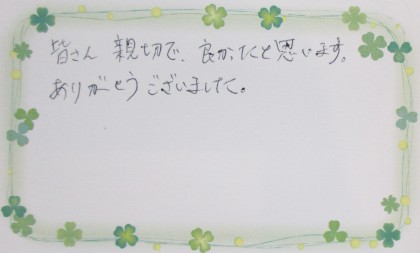 皆さん 親切で、良かったと思います。
ありがとうございました。